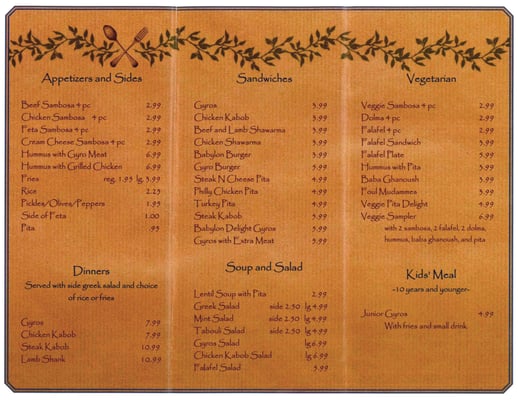 Appetizers and Sides
Beef Sambosa 4 pc 2.99
Chicken Sambosa 4 pc 2.99
Feta Sambosa 4 pc 2.99
Cream Cheese Sambosa 4 pc 2.99
Hummus with Gyro Meat 6.99
Hummus with Grilled Chicken 6.99
Fries reg. 1.95 lg. 3.99
Rice 2.25
Pickles/Olives/Peppers 1.95
Side of Feta 1.00
Pita .95
Dinners
Served with side greek salad and choice
of rice or fries
Gyros 7.99
Chicken Kabob 7.99
Steak Kabob 10.99
Lamb Shank 10.99
Sandwiches
Gyros 3.99
Chicken Kabob 3.99
Beef and Lamb Shawarma 3.99
Chicken Shawarma 3.99
Babylon Burger 3.99
Gyro Burger 5.99
Steak N Cheese Pita 4.99
Philly Chicken Pita 4.99
Turkey Pita 4.99
Steak Kabob 5.99
Babylon Delight Gyros 5.99
Gyros with Extra Meat 5.99
Soup and Salad
Lentil Soup with Pita 2.99
Greek Salad side 2.50 lg 4.99
Mint Salad side 2.50 lg 4.99
Tabouli Salad side 2.50 lg 4.99
Gyros Salad lg 6.99
Chicken Kabob Salad lg 6.99
Falafel Salad 5.99
Vegetarian
Veggie Sambosa 4 pc 2.99
Dolma 4 pc 2.99
Falafel 4 pc 2.99
Falafel Sandwich 3.99
Falafel Plate 5.99
Hummus with Pita 3.99
Baba Ghanoush 3.99
Foul Mudammes 3.99
Veggie Pita Delight 4.99
Veggie Sampler 6.99
with 2 sambosa, 2 falafel, 2 dolma,
hummus, baba ghanoush, and pita
Kids' Meal
~10 years and younger~
Junior Gyros 4.99
With fries and small drink